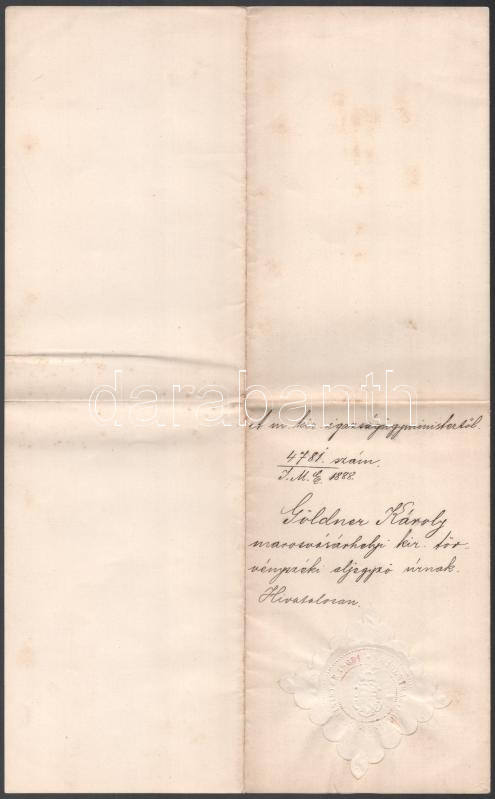 A m. kir. igazságügyministertől.
4781. szám.
I. M. E. 1888.
Göldner Károly
marosvásárhelyi kir. tör-
vényszéki aljegyző úrnak.
Hivatalosan.
darabanth